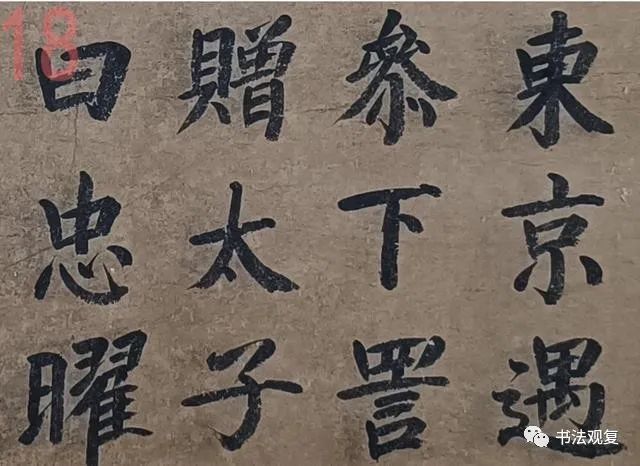 18
東京遇
叅下詈
贈太子
曰忠曜
书法观复